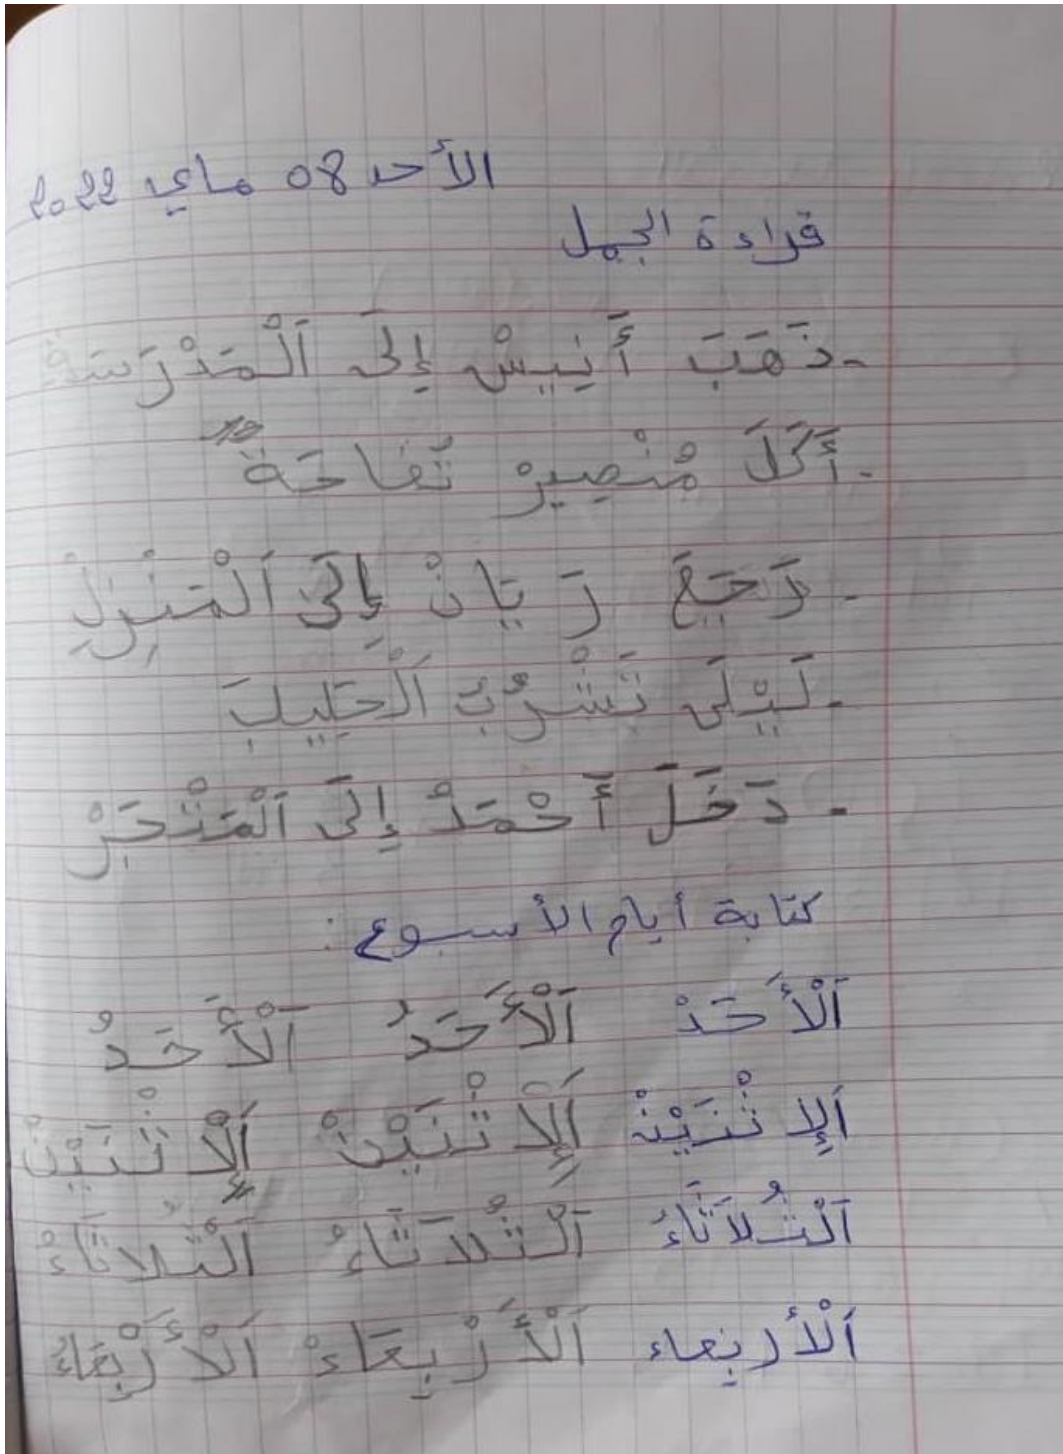 الأحد 08 ماي 2022
قراءة الجمل
-ذَهَبَ أَنِيسْ إِلَى اَلْمَدْرَسَةْ
-أَكَلَ مُنْصِيرْ تُفَاحَةً
-رَجَعَ رَيَانْ إِلَى اَلْمَنْزِلِ
-لَيْلَى تَشْرُبُ اَلْحَلِيبَ
-دَخَلَ أَحْمَدْ إِلَى اَلْمَتْجَرْ
كتابة أيام الأسبوع :
اَلْأَحَدْ اَلْأَحَدُ اَلْأَحَدُ
اَلإِثْنَيْنْ اَلإِثْنَيْنْ اَلإِثْنَيْنْ
اَلْثُلاَثَاءُ اَلْثُلاَثَاءُ اَلْثُلاَثَاءُ
اَلْأَرْبِعاء اَلْأَرْبِعَاءْ اَلْأَرْبِعَاءُ